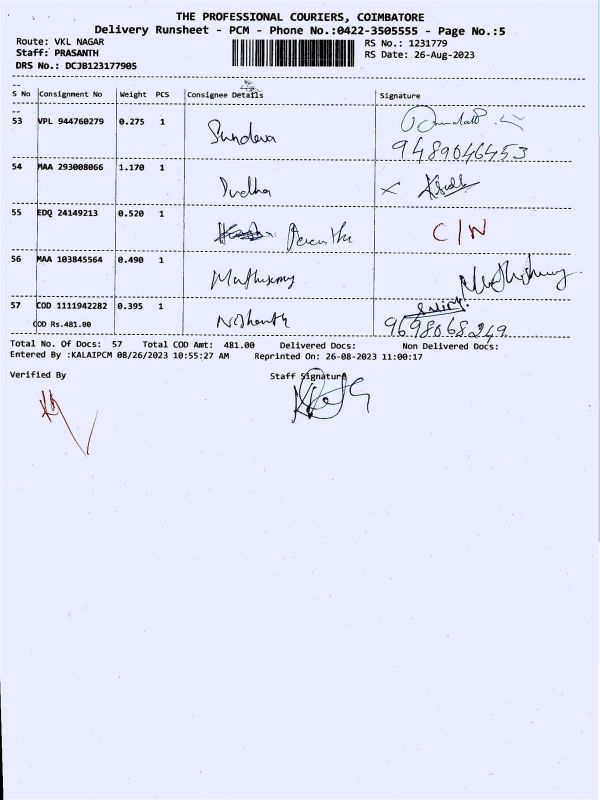 THE PROFESSIONAL COURIERS, COIMBATORE
Delivery Runsheet - PCM - Phone No.:0422-3505555 - Page No.:5
Route: VKL NAGAR
RS No.: 1231779
Staff: PRASANTH
RS Date: 26-Aug-2023
DRS No.: DCJB123177905
S No Consignment No Weight PCS Consignee Details Signature
53 VPL 944760279 0.275 1
9489046453
54 MAA 293008066 1.170 1
55 EDQ 24149213 0.520 1 C/N
56 MAA 103845564 0.490 1
57 COD 1111942282 0.395 1 Nishanth
COD Rs.481.00 9698068249
Total No. Of Docs: 57 Total COD Amt: 481.00 Delivered Docs: Non Delivered Docs:
Entered By :KALAIPCM 08/26/2023 10:55:27 AM Reprinted On: 26-08-2023 11:00:17
Verified By Staff Signature